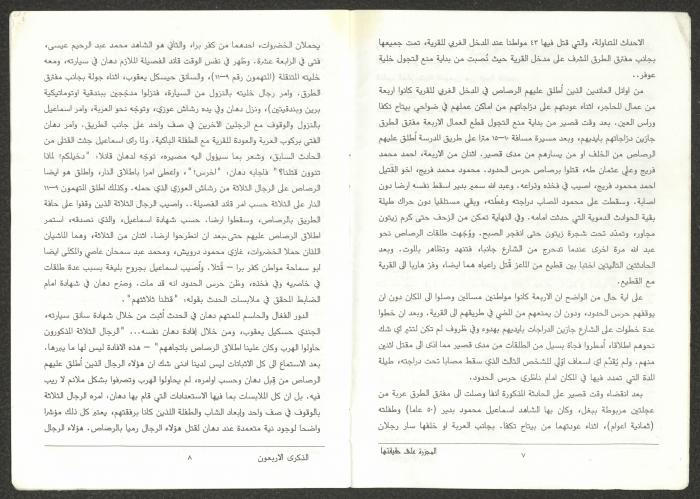 الاحداث المتتالية، والتي قتل فيها ٤٣ مواطنا عند المدخل الغربي للقرية، تمت جميعها
بجانب مفترق الطرق المشرف على مدخل القرية حيث نُصبت من بداية منع التجول خلية
عوفر..
من اوائل العائدين الذين أُطلق عليهم الرصاص في المدخل الغربي للقرية كانوا اربعة
من عمال المحاجر، اثناء عودتهم على دراجاتهم من اماكن عملهم في ضواحي بيتاح تكفا
وراس العين. بعد وقت قصير من بداية منع التجول قطع العمال الاربعة مفترق الطرق
جازين دراجاتهم بايديهم، وبعد مسيرة مسافة ١٠-١٥ مترا على طريق المدرسة أُطلق عليهم
الرصاص من الخلف او من يسارهم من مدى قصير. اثنان من الاربعة، احمد محمد
فريج وعلي عثمان طه، قتلوا برصاص حرس الحدود. محمود محمد فريج، اخو القتيل
احمد محمود فريج، اصيب في فخذه وذراعه. وعبد الله سمير بدير اسقط نفسه ارضا دون
اصابة. وسقطت على محمود المصاب دراجته وغطّته، وبقي مستلقيا دون حراك طيلة
بقية الحوادث الدموية التي حدثت امامه. وفي النهاية تمكن من الزحف حتى كرم زيتون
مجاور، وتمدّد تحت شجرة زيتون حتى انفجر الصبح. ووُجهت طلقات الرصاص نحو
عبد الله مرة اخرى عندما تدحرج من الشارع جانبا، فتنهد وتظاهر بالموت. وبعد
الحادثتين التاليتين اختبأ بين قطيع من الماعز قُتل راعياه هما ايضا، وفرّ هاربا الى القرية
مع القطيع.
على اية حال من الواضح ان الاربعة كانوا مواطنين مسالمين وصلوا الى المكان دون ان
يوقفهم حرس الحدود، ودون ان يمنعهم من المضي في طريقهم الى القرية. وبعد ان خطوا
عدة خطوات على الشارع جازين الدراجات بايديهم بهدوء وفي ظروف لم تكن لتثير اي شك
نحوهم اطلاقا، أُمطروا فجأة بسيل من الطلقات من مدى قصير مما ادى الى مقتل اثنين
منهم. ولم يُقدّم اي اسعاف اوّلي للشخص الثالث الذي سقط مصابا تحت دراجته، طيلة
المدة التي تمدد فيها في المكان امام ناظري حرس الحدود.
بعد انقضاء وقت قصير على الحادثة المذكورة انفا وصلت الى مفترق الطرق عربة من
عجلتين مربوطة ببغل، وكان بها الشاهد اسماعيل محمود بدير (٥٠ عاما) وطفلته
(ثمانية اعوام)، اثناء عودتهما من بيتاح تكفا. بجانب العربة او خلفها سار رجلان
٧
المجزرة على حقيقتها
يحملان الخضروات، احدهما من كفر برا، والثاني هو الشاهد محمد عبد الرحيم عيسى،
فتى في الرابعة عشرة. وظهر في نفس الوقت قائد الفصيلة الملازم دهان في سيارته، ومعه
خليته المتنقلة (المتهمون رقم ٩-١١)، والسائق حيسكل يعقوب، اثناء جولة بجانب مفترق
الطرق. وامر رجال خليته بالنزول من السيارة، فنزلوا مدججين ببندقية اوتوماتيكية
برين وبندقيتين)، ونزل دهان وفي يده رشاش عوزي، وتوجّه نحو العربة، وامر اسماعيل
بالنزول والوقوف مع الرجلين الاخرين في صف واحد على جانب الطريق. وامر دهان
الفتى بركوب العربة والعودة للقرية مع الطفلة الباكية. ولما رأى اسماعيل جثث القتلى من
الحادث السابق، وشعر بما سيؤول اليه مصيره، توجّه لدهان قائلا، "دخيلكم! لماذا
تنوون قتلنا؟" فاجابه دهان، "اخرس!"، واعطى امرا باطلاق النار، واطلق هو ايضا
الرصاص على الرجال الثلاثة من رشاش العوزي الذي حمله. وكذلك اطلق المتهمون ٩-١١
النار على الثلاثة حسب امر قائد الفصيلة.. وأصيب الرجال الثلاثة الذين وقفوا على حافة
الطريق بالرصاص، وسقطوا ارضا. حسب شهادة اسماعيل، والذي نصدقه، استمر
اطلاق الرصاص عليهم حتى بعد ان انطرحوا ارضا. اثنان من الثلاثة، وهما الماشيان
اللذان حملا الخضروات، غازي محمود درويش، ومحمد عبد سمحان عاصي والمكنّى ايضا
ابو سماحة مواطن كفر برا – قُتلا. وأُصيب اسماعيل بجروح بليغة بسبب عدة طلقات
في خاصريه وفي فخذه، وظن حرس الحدود انه قد مات. وصرح دهان في شهادة امام
الضابط المحقق في ملابسات الحدث بقوله، "قتلنا ثلاثتهم".
الدور الفعال والحاسم للمتهم دهان في الحدث أُثبت من خلال شهادة سائق سيارته،
الجندي حسكيل يعقوب، ومن خلال إفادة دهان نفسه... "الرجال الثلاثة المذكورون
حاولوا الهرب وكان علينا اطلاق الرصاص باتجاههم" – هذه الافادة ليس لها ما يبررها.
بعد الاستماع الى كل الاثباتات ليس لدينا ادنى شك ان هؤلاء الرجال الذين أُطلق عليهم
الرصاص من قِبل دهان وحسب اوامره، لم يحاولوا الهرب وتصرفوا بشكل ملائم لا ريب
فيه. بل ان كل الملابسات بما فيها الاستعدادات التي قام بها دهان، امره الرجال الثلاثة
بالوقوف في صف واحد وإبعاد الشاب والطفلة اللذين كانا برفقتهم، يعتبر كل ذلك مؤشرا
واضحا لوجود نية متعمدة عند دهان لقتل هؤلاء الرجال رميا بالرصاص. هؤلاء الرجال
٨
الذكرى الاربعون